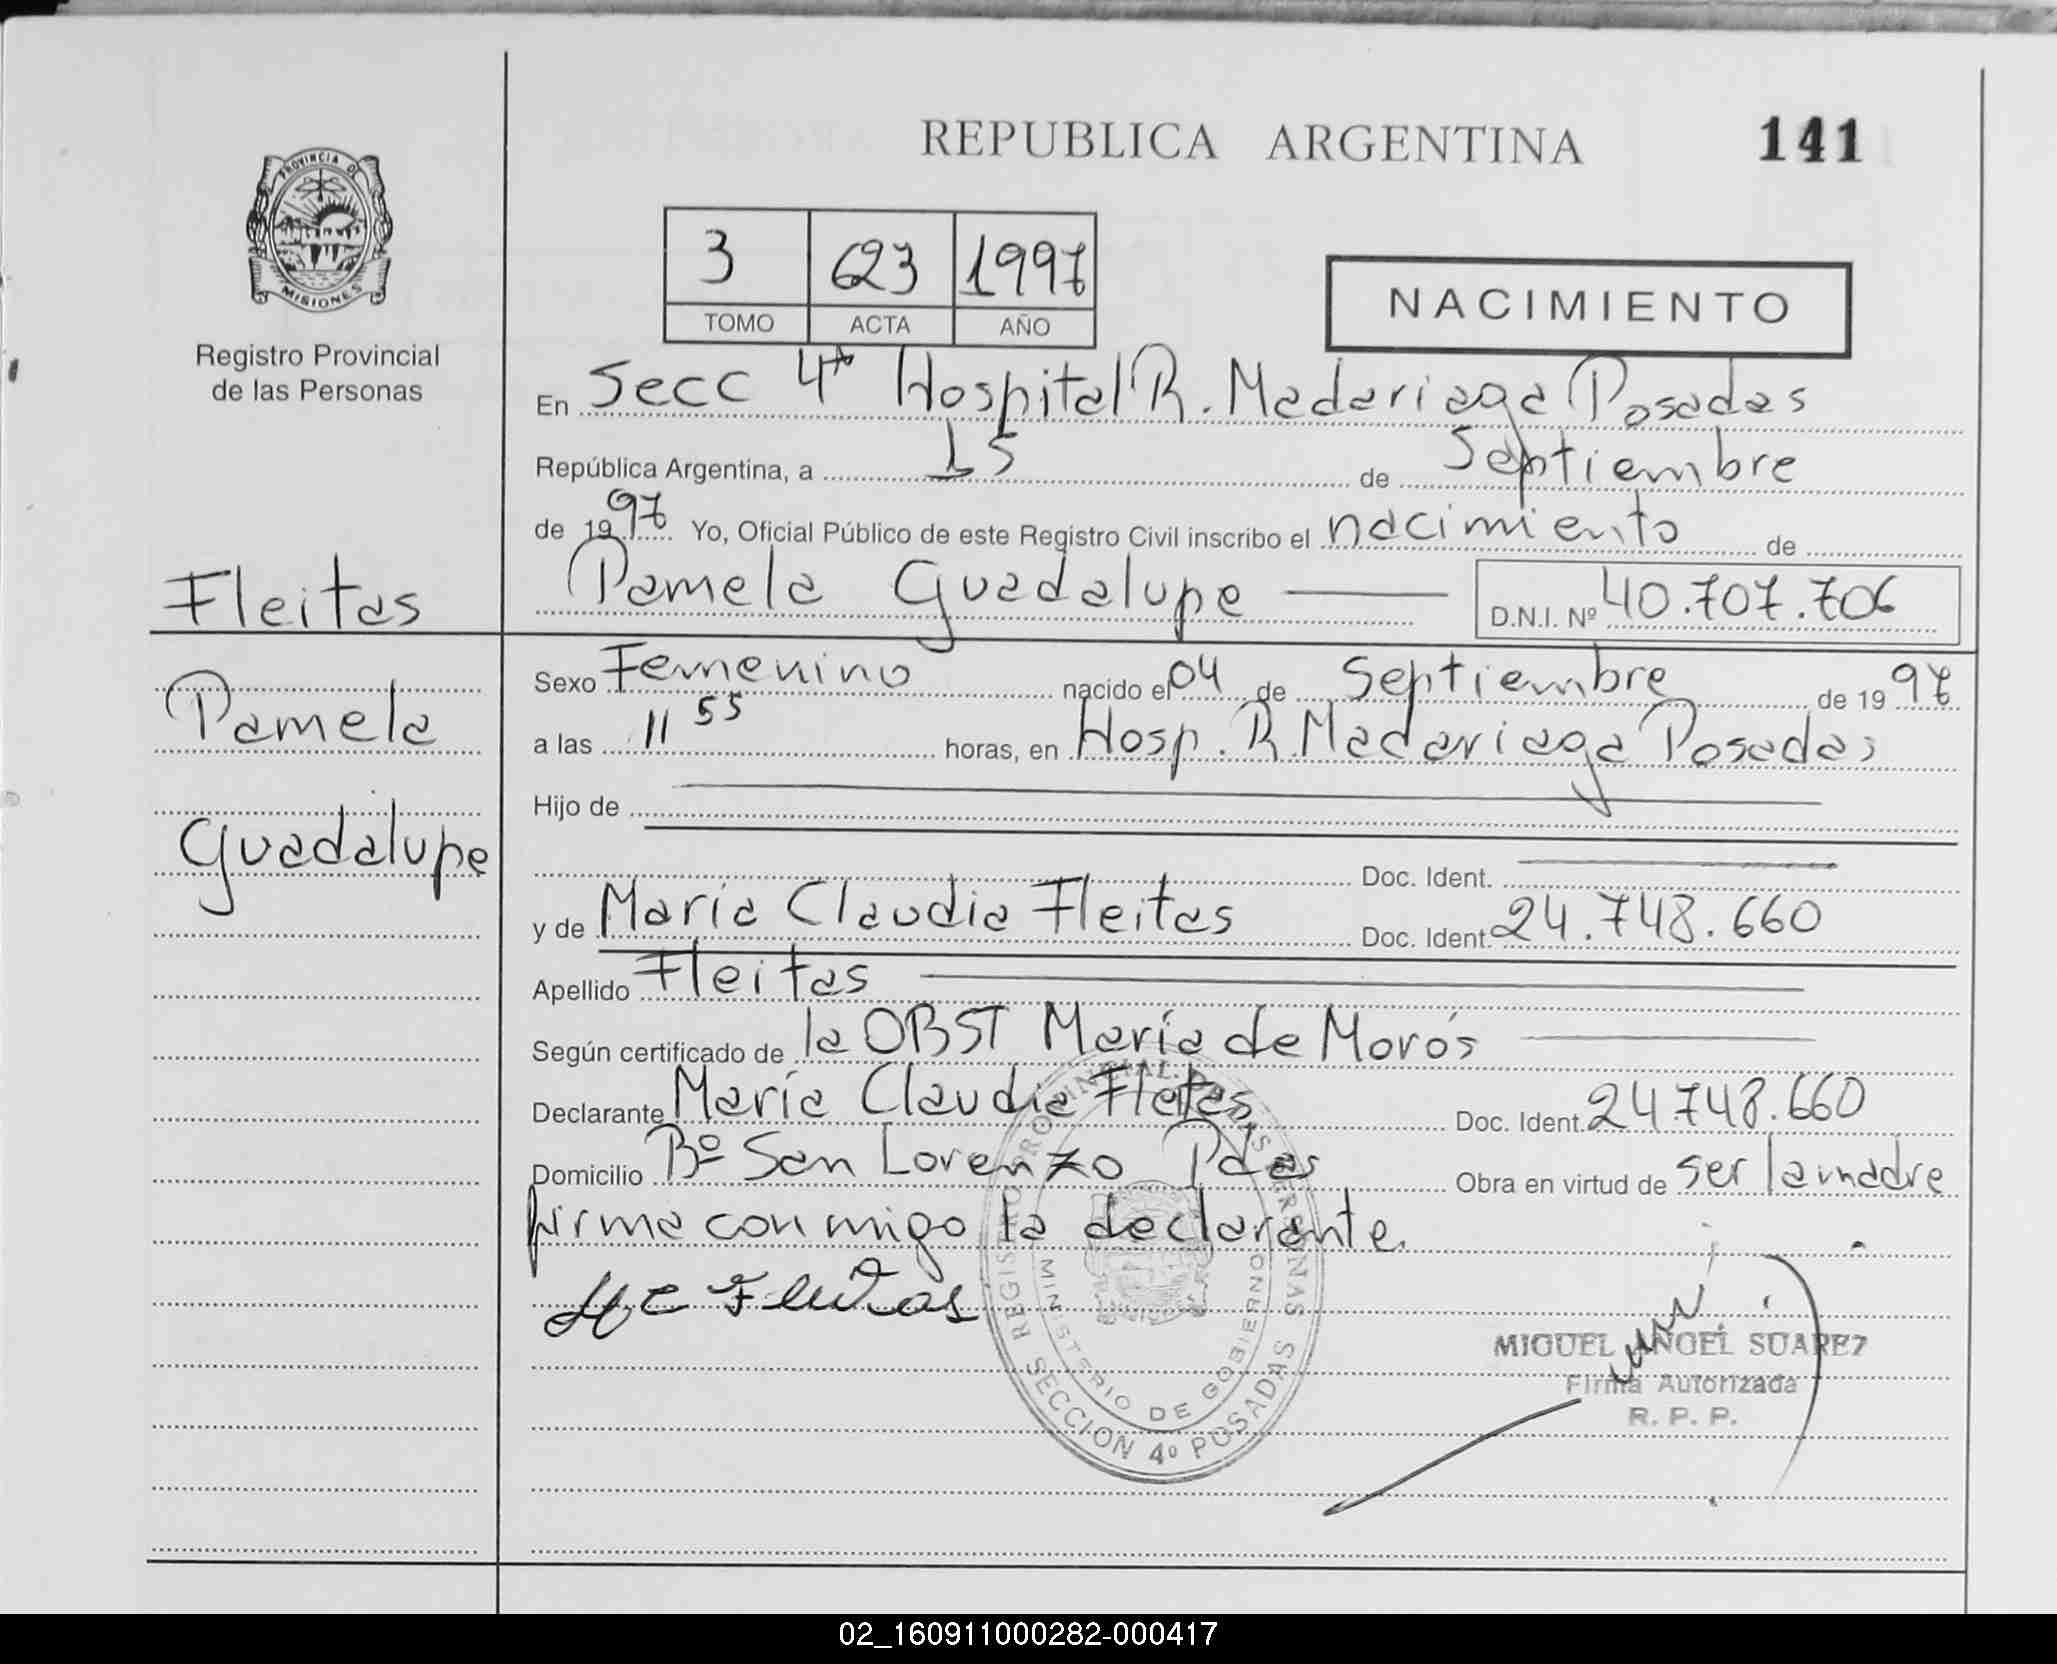 REPUBLICA ARGENTINA 141
PROVINCIA DE
MISIONES
Registro Provincial
de las Personas
3 623 1997
TOMO ACTA AÑO
NACIMIENTO
En Secc 4ta Hospital R. Madariaga Posadas
República Argentina, a 15 de Septiembre
de 1997 Yo, Oficial Público de este Registro Civil inscribo el nacimiento de
Pamela Guadalupe D.N.I. Nº 40.707.706
Fleitas
Pamela
Guadalupe
Sexo Femenino nacido el 04 de Septiembre de 1997
a las 11 55 horas, en Hosp. R. Madariaga Posadas
Hijo de
Doc. Ident.
y de María Claudia Fleitas Doc. Ident. 24.748.660
Apellido Fleitas
Según certificado de la OBST María de Morós
Declarante María Claudia Fleitas Doc. Ident. 24.748.660
Domicilio Bº San Lorenzo Pdas Obra en virtud de ser la madre
firma conmigo la declarante.
MC Fleitas
REGISTRO PROVINCIAL DE LAS PERSONAS
MINISTERIO DE GOBIERNO
SECCION 4º POSADAS
MIGUEL ANGEL SUAREZ
Firma Autorizada
R. P. P.
02_160911000282-000417